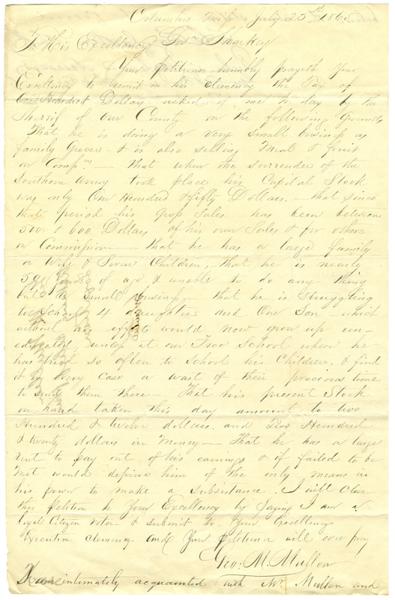 Columbus Miss July 25th 1865
To His Excellency Gov Sharkey
Your Petitioner humbly prayeth Your
Excellency to remit in his clemency the Tax of
One Hundred Dollars asked of me to day by the
Sheriff of our County on the following Grounds
That he is doing a very small business as
family Grocer & is also selling Meal & Fruit
on Compn — That when the surrender of the
Southern Army took place his Capital Stock
was only One Hundred & fifty Dollars — that since
that period his gross sales has been between
500 & 600 Dollars of his own Sales & for others
on Commission — that he has a large family
a Wife & Seven Children, that he is nearly
50 of age & unable to do any thing
but a Small business, that he is Struggling
to 4 daughters and One Son — which
without his efforts would now grow up un-
educated at our Free School where he
has tried so often to School his Children, & find
it in every case a waste of their precious time
to send them there — That his present Stock
on hand taken this day amount to two
Hundred & twelve dollars and Two Hundred
& twenty dollars in Money — That he has a large
rent to pay out of his earnings & if failed to be
met would deprive him of the only means in
his power to make a Subsistance. I will close
this petition to Your Excellency by saying I am a
Loyal Citizen Voter & Submit to Your Excellency
Executive clemency and Your petitioner will ever pray
Geo. M. Mullon
I am intimately acquainted with Mr Mullon and